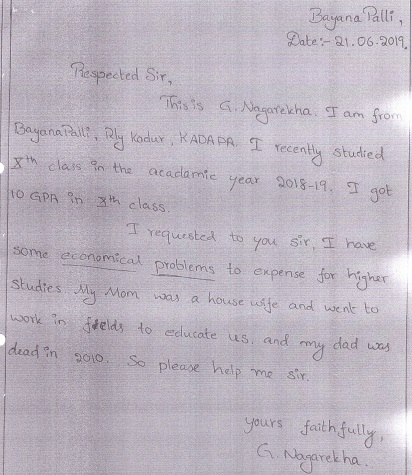 Bayana Palli,
Date:- 21.06.2019.
Respected Sir,
This is G. Nagarekha. I am from
Bayana Palli, Rly Kodur, KADAPA. I recently studied
Xth class in the acadamic year 2018-19. I got
10 GPA in Xth class.
I requested to you sir, I have
some economical problems to expense for higher
studies. My Mom was a house wife and went to
work in fields to educate us. and my dad was
dead in 2010. So please help me sir.
yours faithfully,
G. Nagarekha.